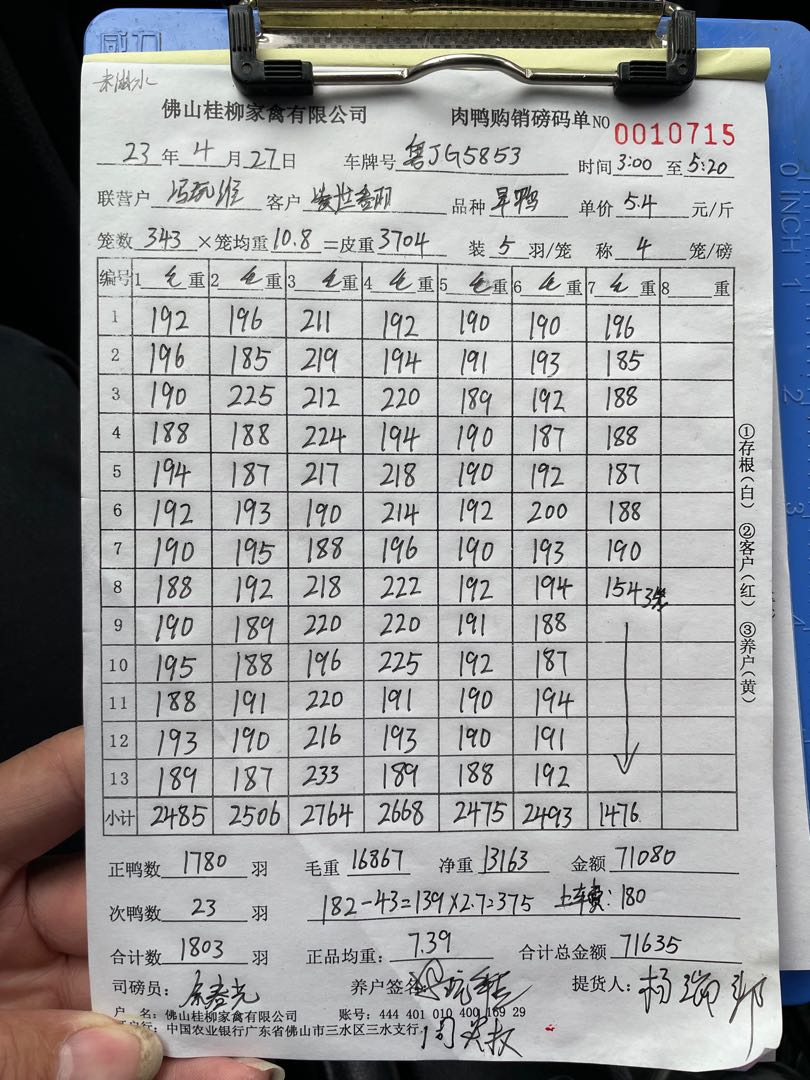 威力
未淋水
佛山桂柳家禽有限公司 肉鸭购销磅码单NO 0010715
23 年 4 月 27 日 车牌号 粤JG5853 时间 3:00 至 5:20
联营户 客户 品种 旱鸭 单价 5.4 元/斤
笼数 343 ×笼均重 10.8 =皮重 3704 装 5 羽/笼 称 4 笼/磅
编号 1 毛 重 2 毛 重 3 毛 重 4 毛 重 5 毛 重 6 毛 重 7 毛 重 8 重
1 192 196 211 192 190 190 196
2 196 185 219 194 191 193 185
3 190 225 212 220 189 192 188
4 188 188 224 194 190 187 188
5 194 187 217 218 190 192 187
6 192 193 190 214 192 200 188
7 190 195 188 196 190 193 190
8 188 192 218 222 192 194 154 3笼
9 190 189 220 220 191 188
10 195 188 196 225 192 187
11 188 191 220 191 190 194
12 193 190 216 193 190 191
13 189 187 233 189 188 192
小计 2485 2506 2764 2668 2475 2493 1476
①存根(白) ②客户(红) ③养户(黄)
正鸭数 1780 羽 毛重 16867 净重 13163 金额 71080
次鸭数 23 羽 182-43=139×2.7=375 上车费:180
合计数 1803 羽 正品均重: 7.39 合计总金额 71635
司磅员: 养户签名 提货人:
户 名: 佛山桂柳家禽有限公司 账号: 444 401 010 400 169 29
户行: 中国农业银行广东省佛山市三水区三水支行
0 INCH 1
2
3
4